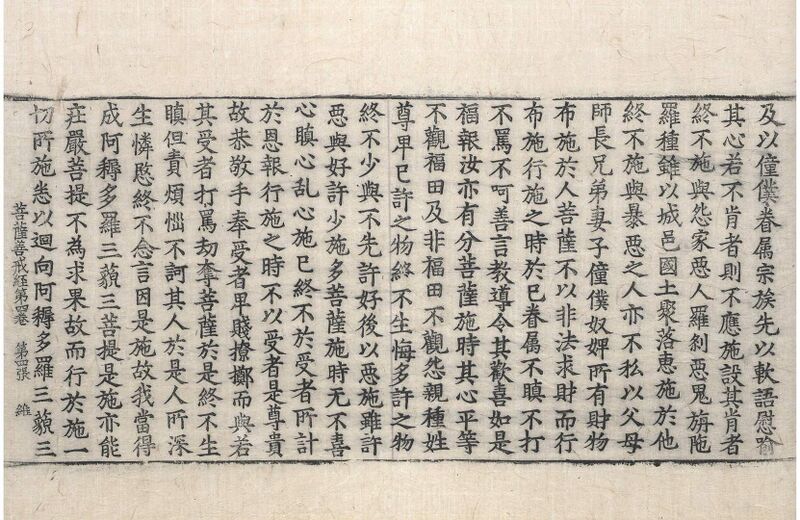 及以僮僕眷属宗族先以軟語慰喻
其心若不肯者則不應施設其肯者
終不施與怨家惡人羅刹惡鬼旃陁
羅種雖以城邑國土聚落惠施於他
終不施與暴惡之人亦不私以父母
師長兄弟妻子僮僕奴婢所有財物
布施於人菩薩不以非法求財而行
布施行施之時於已眷属不瞋不打
不罵不呵善言教導令其歡喜如是
福報汝亦有分菩薩施時其心平等
不觀福田及非福田不觀怨親種姓
尊卑已許之物終不生悔多許之物
終不少與不先許好後以惡施雖許
惡與好許少施多菩薩施時无不喜
心瞋心乱心施已終不於受者所計
於恩報行施之時不以受者是尊貴
故恭敬手奉受者卑賤撩擲而與若
其受者打罵劫奪菩薩於是終不生
瞋但責煩惱不訶其人於是人所深
生憐愍終不念言因是施故我當得
成阿耨多羅三藐三菩提是施亦能
莊嚴菩提不為求果故而行於施一
切所施悉以迴向阿耨多羅三藐三
菩薩善戒経第四卷 第四張 維